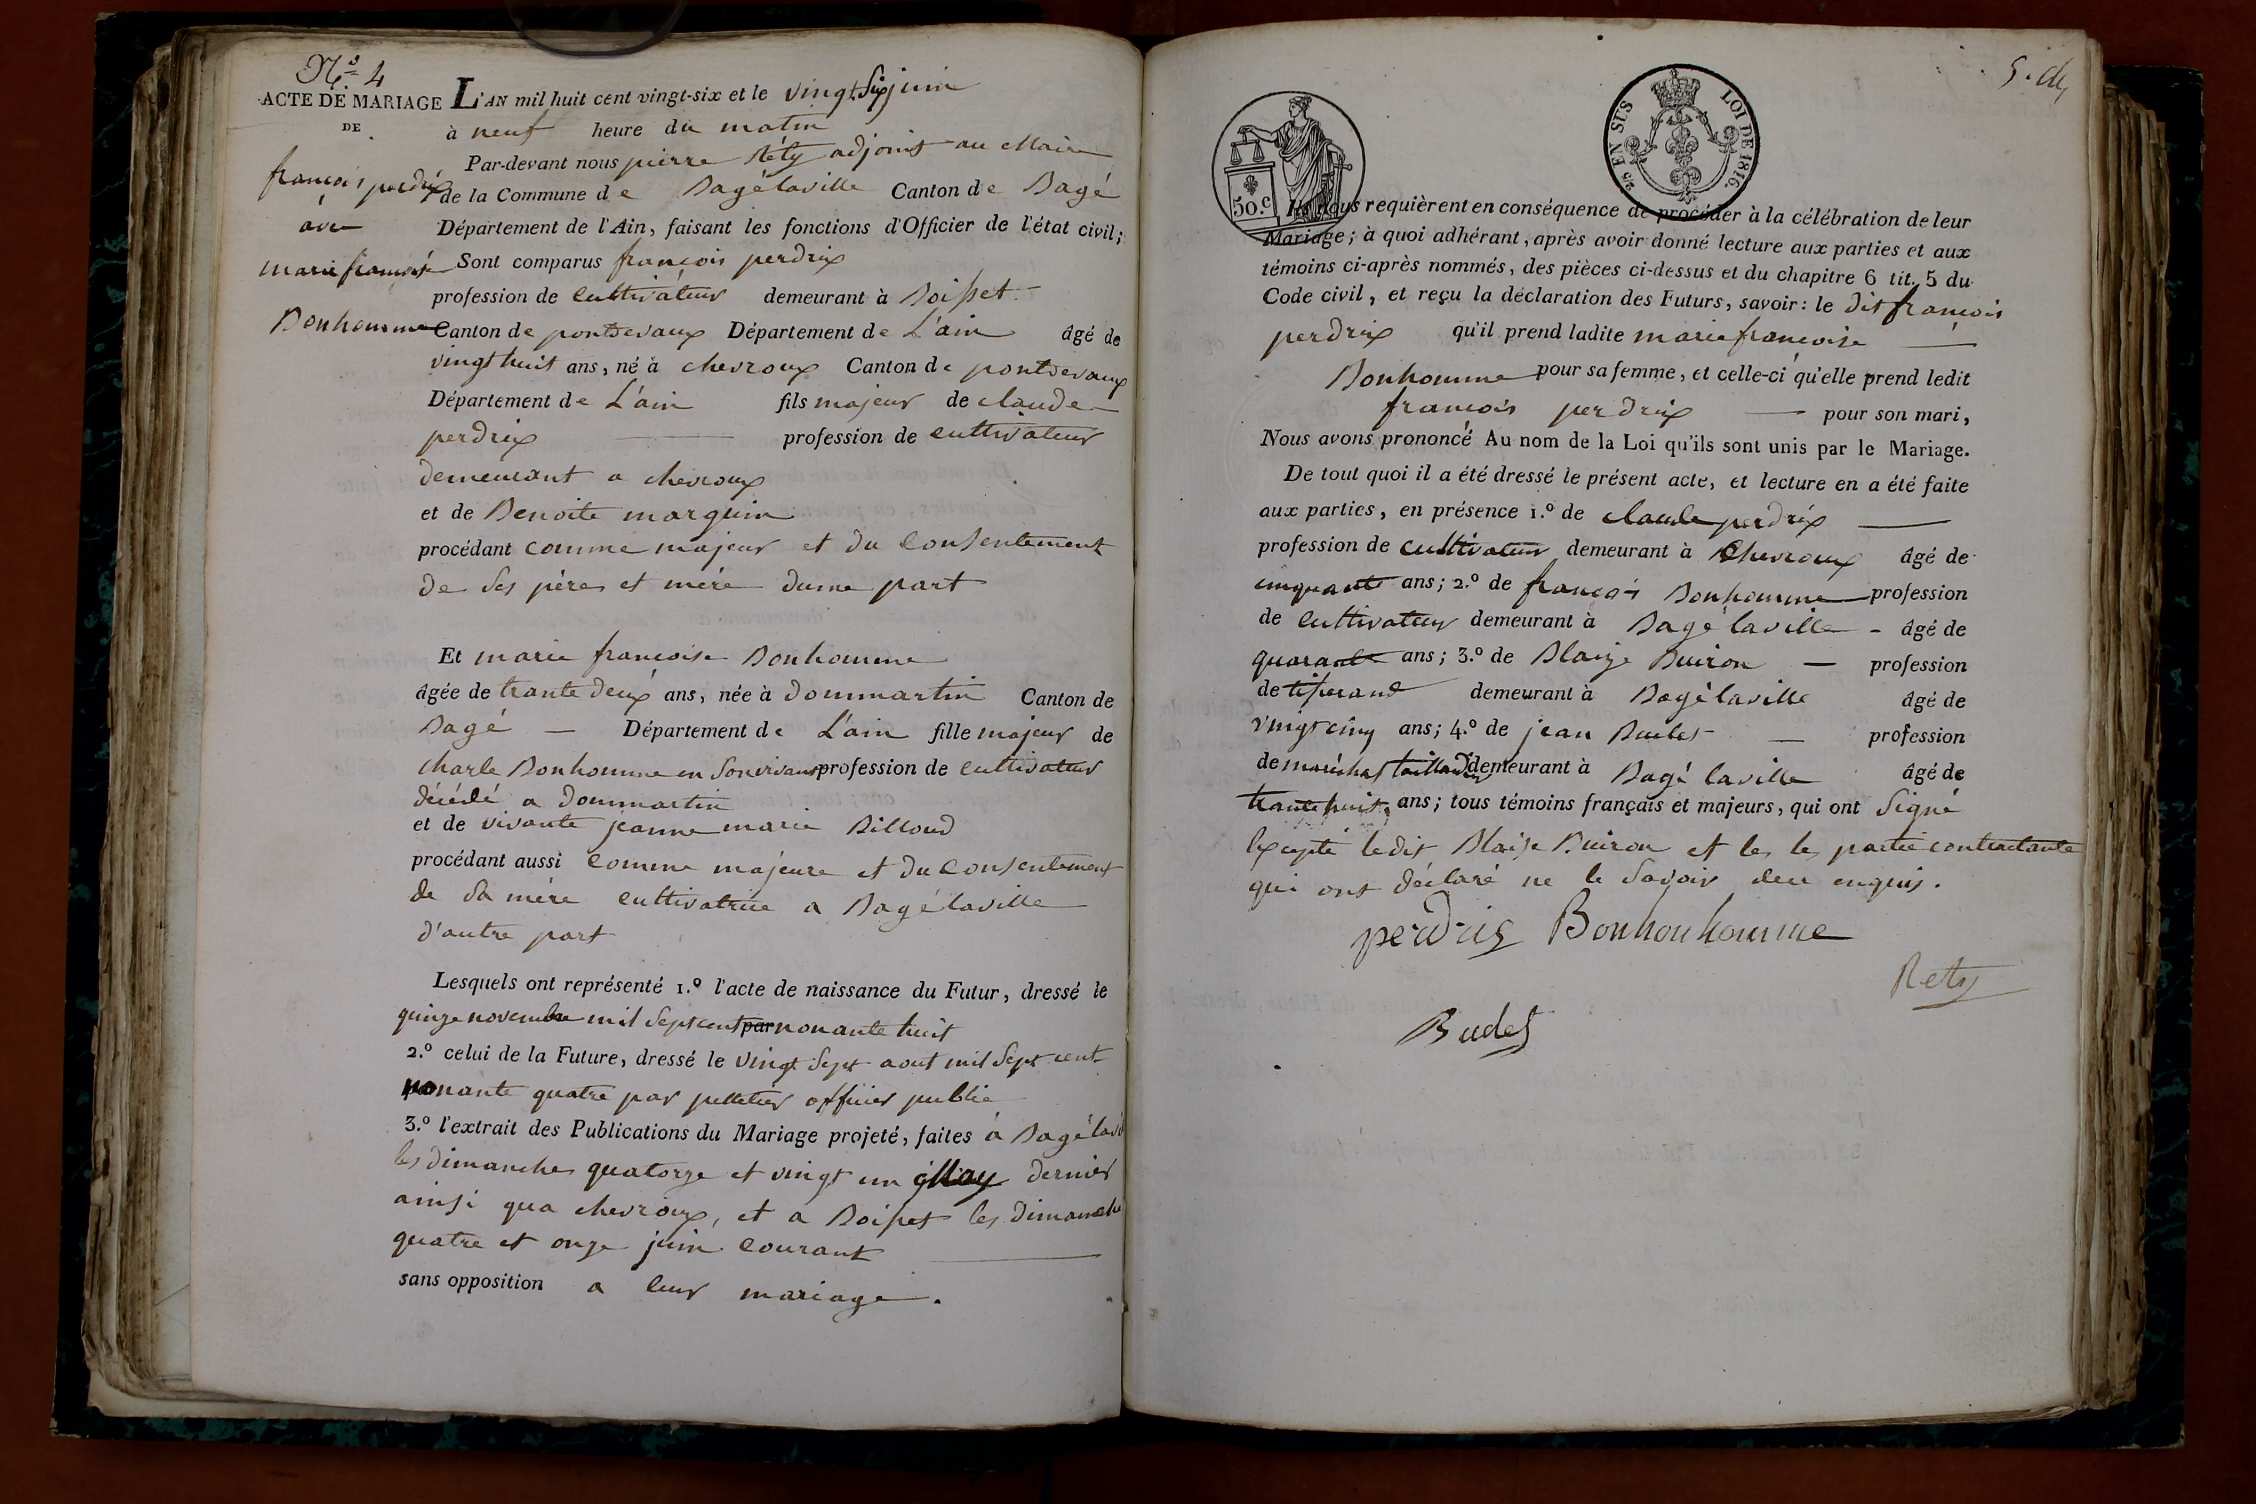 N.° 4
ACTE DE MARIAGE
DE
françois perdrix
avec
marie françoise
Bonhomme
L'AN mil huit cent vingt-six et le vingt Six juin
à neuf heure du matin
Par-devant nous pierre Réty adjoint au Maire
de la Commune de Bagélaville Canton de Bagé
Département de l'Ain, faisant les fonctions d'Officier de l'état civil;
Sont comparus françois perdrix
profession de cultivateur demeurant à Boisset
Canton de pontdevaux Département de L'ain âgé de
vingt huit ans, né à chevroux Canton de pontdevaux
Département de L'ain fils majeur de claude
perdrix profession de cultivateur
demeurant a chevroux
et de Benoite marguin
procédant comme majeur et du Consentement
de Ses père et mére dune part
Et marie françoise Bonhomme
âgée de trante deux ans, née à dommartin Canton de
Bagé Département de L'ain fille majeur de
charle Bonhomme en Sonvivant profession de cultivateur
décédé a dommartin
et de vivante jeanne marie Billoud
procédant aussi comme majeure et du Consentement
de Sa mére cultivatrice a Bagélaville
d'autre part
Lesquels ont représenté 1.° l'acte de naissance du Futur, dressé le
quinze novembre mil Sept cent par nonante huit
2.° celui de la Future, dressé le vingt Sept aout mil Sept cent
nonante quatre par pelletier officier public
3.° l'extrait des Publications du Mariage projeté, faites à Bagélavi
les dimanches quatorze et vingt un May dernier
ainsi qua chevroux, et a Boisset les dimanche
quatre et onze juin Courant
sans opposition a leur mariage.
50.c
2/5 EN SUS
LOI DE 1816.
Ils nous requièrent en conséquence de procéder à la célébration de leur
Mariage; à quoi adhérant, après avoir donné lecture aux parties et aux
témoins ci-après nommés, des pièces ci-dessus et du chapitre 6 tit. 5 du
Code civil, et reçu la déclaration des Futurs, savoir: le dit françois
perdrix qu'il prend ladite marie françoise
Bonhomme pour sa femme, et celle-ci qu'elle prend ledit
françois perdrix pour son mari,
Nous avons prononcé Au nom de la Loi qu'ils sont unis par le Mariage.
De tout quoi il a été dressé le présent acte, et lecture en a été faite
aux parties, en présence 1.° de claude perdrix
profession de cultivateur demeurant à Chevroux âgé de
cinquante ans; 2.° de françois Bonhomme profession
de cultivateur demeurant à Bagé laville âgé de
quarante ans; 3.° de Blaize Buiron profession
de tisserand demeurant à Bagélaville âgé de
vingt cinq ans; 4.° de jean Budet profession
de maréchal taillandier demeurant à Bagé laville âgé de
trante huit ans; tous témoins français et majeurs, qui ont Signé
Excepté ledit Blaise Buiron et les les partie contractante
qui ont déclaré ne le Savoir deu enquis.
perdrix Bonhonhomme
Rety
Budet